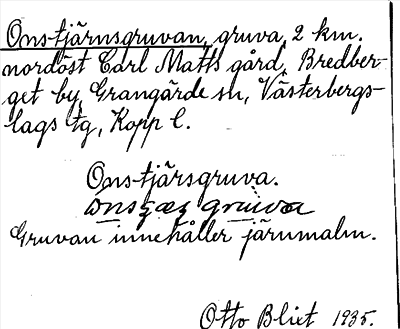 Onstjärnsgruvan, gruva, 2 km.
nordöst Carl Matts gård, Bredber-
get by, Grangärde sn, Västerbergs-
lags tg, Kopp l.
Onstjärsgruva.
gruva
Gruvan innehåller järnmalm.
Otto Blixt 1935.